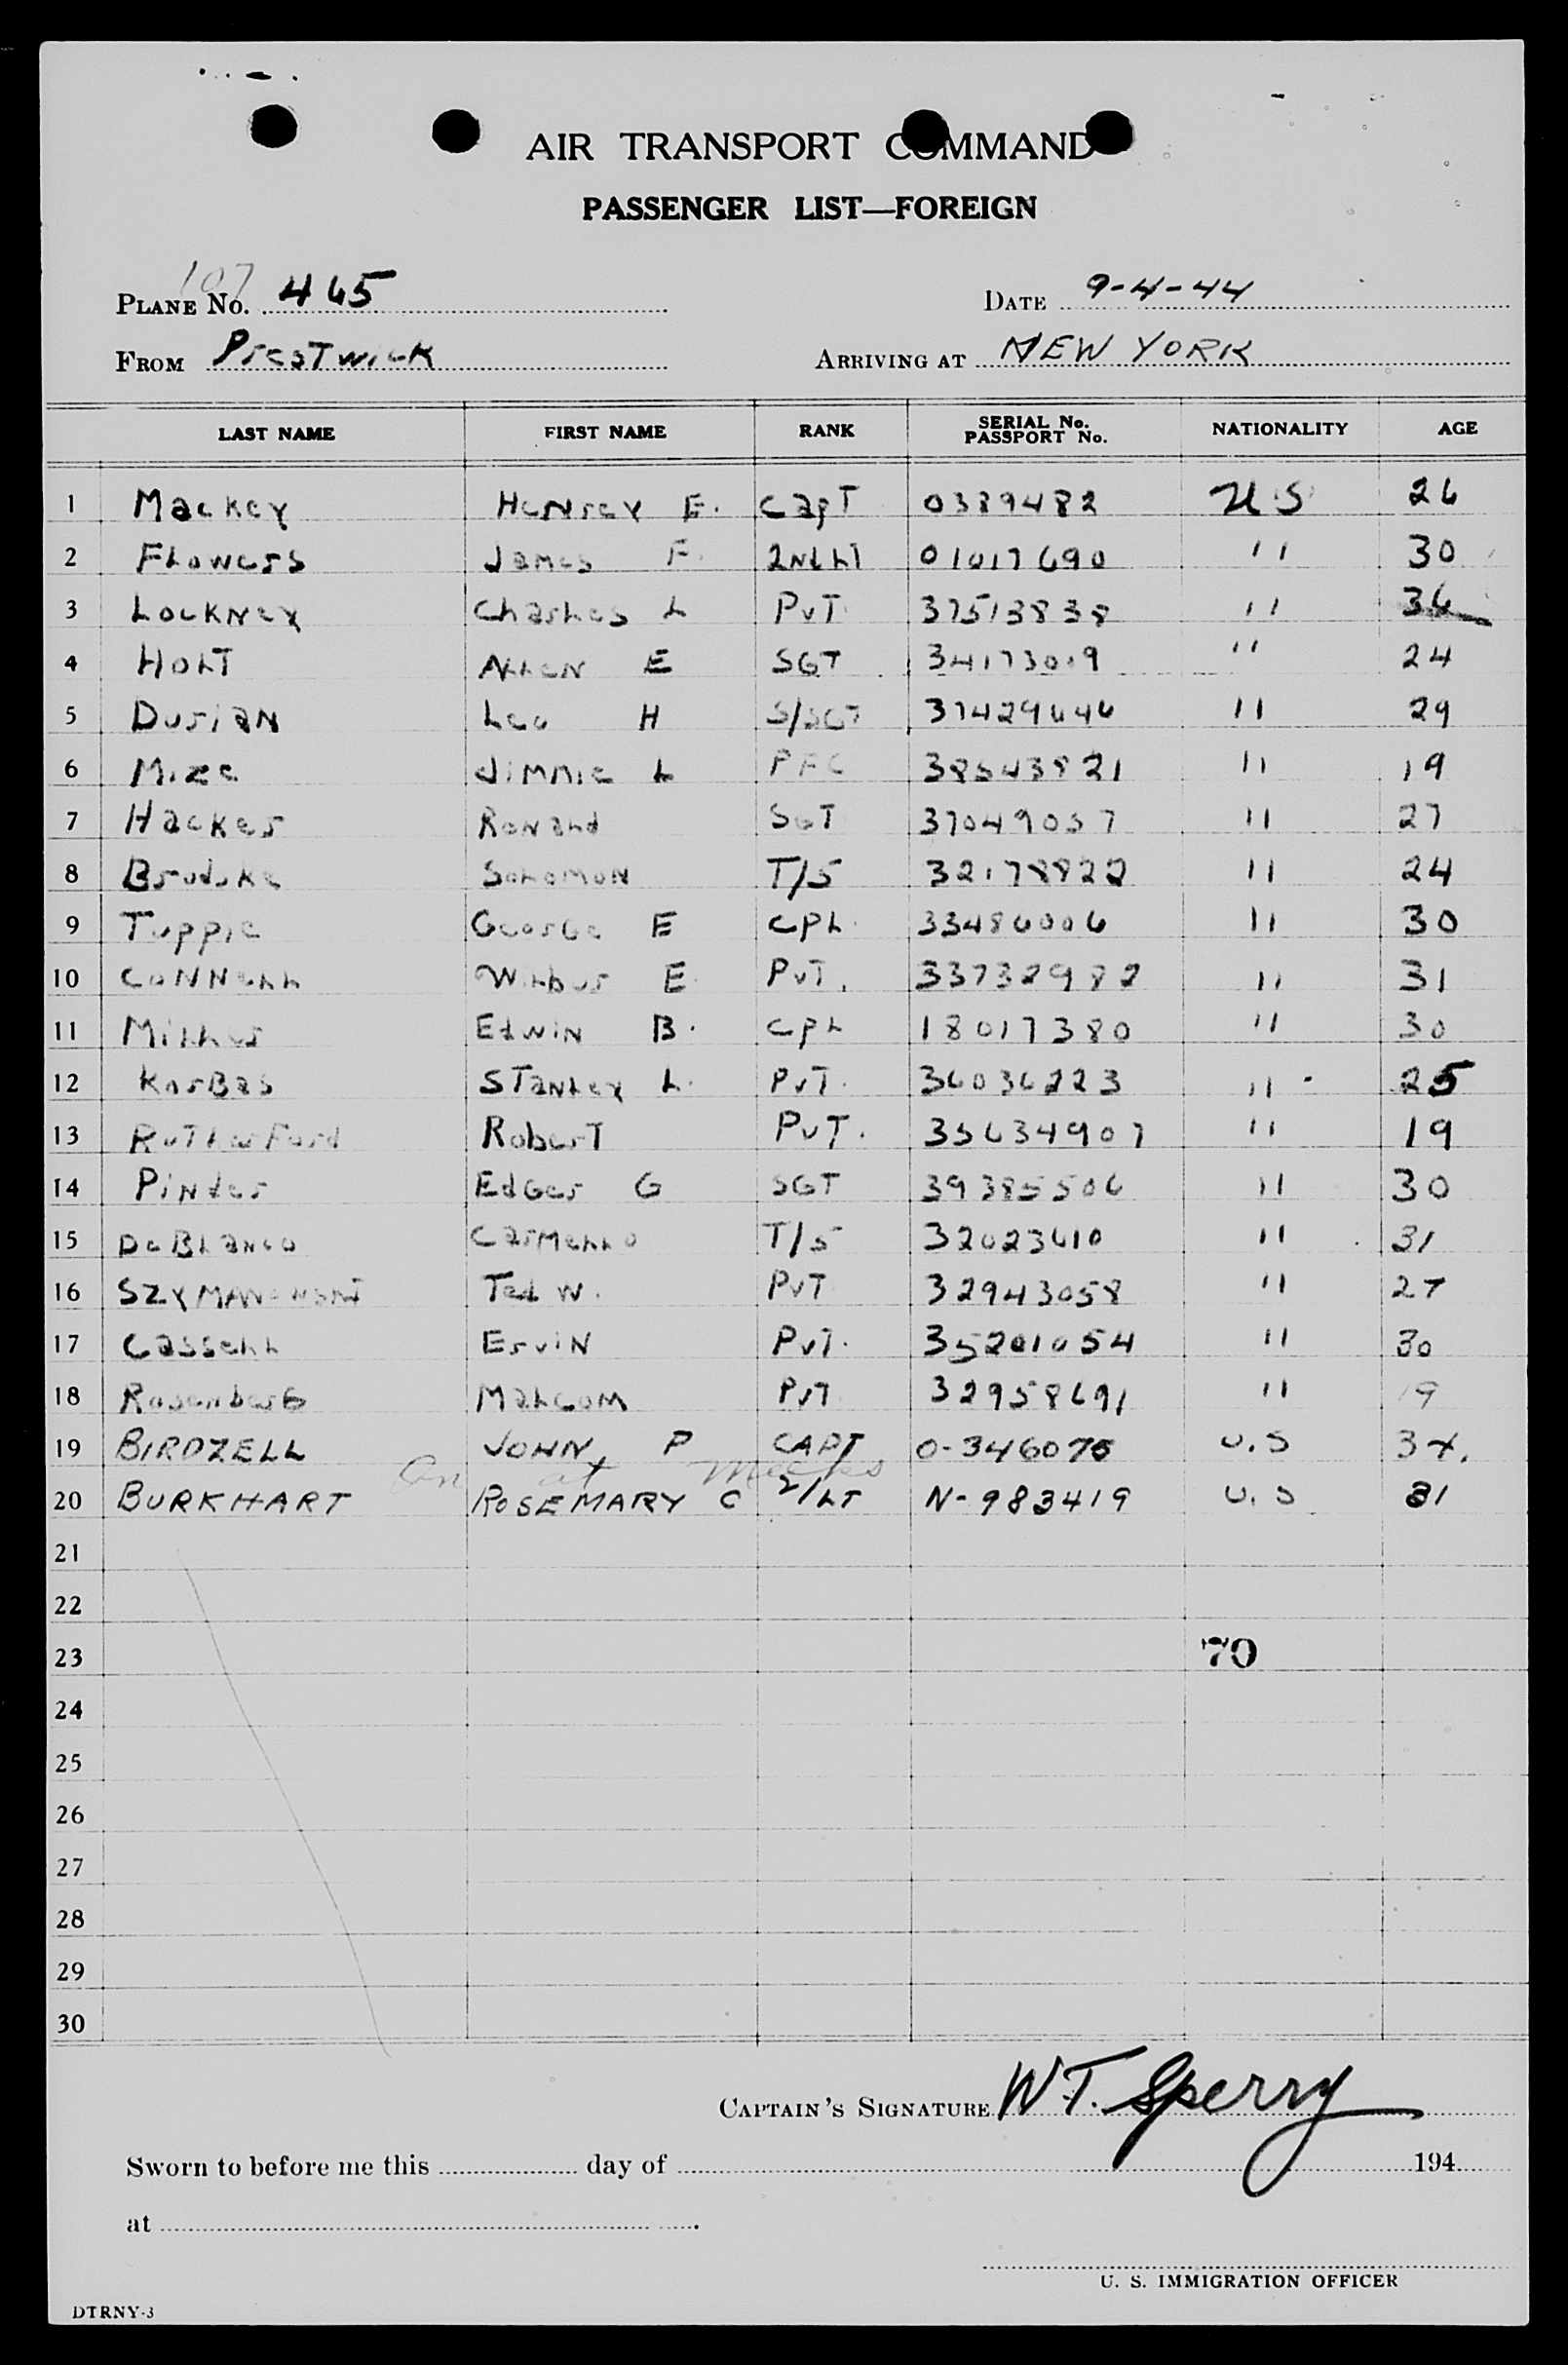 AIR TRANSPORT COMMAND
PASSENGER LIST—FOREIGN
107
PLANE No. 465 DATE 9-4-44
FROM Prestwick ARRIVING AT NEW YORK
LAST NAME FIRST NAME RANK SERIAL No. PASSPORT No. NATIONALITY AGE
1 Mackey Henrey E. Capt 0389482 US 26
2 Flowers James F. 2nd Lt 01017690 " 30
3 Lockney Charles L Pvt 37513838 " 36
4 Holt Allen E SGT 34173019 " 24
5 Durian Leo H S/SGT 37429646 " 29
6 Mize Jimmie L PFC 38543821 " 19
7 Hacker Ronald SGT 37049057 " 27
8 Brodske Solomon T/5 32178822 " 24
9 Tuppie George E Cpl. 33486006 " 30
10 Connell Wilbur E Pvt. 33732982 " 31
11 Miller Edwin B. Cpl 18017380 " 30
12 KorBas Stanley L. Pvt. 36036223 " 25
13 Rutherford Robert Pvt. 35634907 " 19
14 Pinder Edger G SGT 39385506 " 30
15 DeBlanco Carmello T/5 32023610 " 31
16 Ted W. Pvt 32943058 " 27
17 Cassell Ervin Pvt. 35201054 " 30
18 Rosenberg Malcom Pvt 32958691 " 19
19 BIRDZELL JOHN P CAPT O-346075 U.S
20 BURKHART ROSEMARY C 2/LT N-983419 U.S
21
22
23 70
24
25
26
27
28
29
30
CAPTAIN'S SIGNATURE W.T. Sperry
Sworn to before me this day of 194
at
U. S. IMMIGRATION OFFICER
DTRNY-3